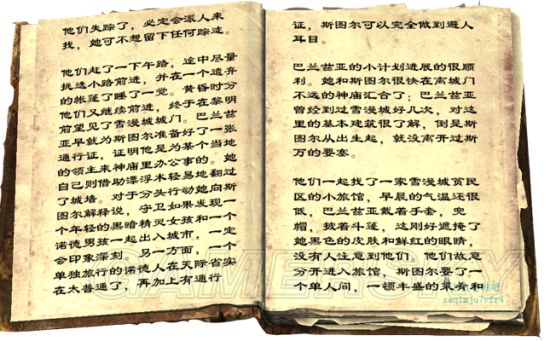 他们失踪了，必定会派人来
找，她可不想留下任何踪迹。
他们赶了一下午路，途中尽量
挑选小路前进，并在一个遗弃
的帐篷了睡了一觉。黄昏时分
他们又继续前进，终于在黎明
前望见了雪漫城。巴兰兹
亚早就为斯图尔准备好了一张
通行证，证明他是为某个当地
的领主来神庙里办公事的。她
自己则借助漂浮术轻易地翻过
了城墙。对于分头行动她向斯
图尔解释说，守卫如果发现一
个年轻的黑暗精灵女孩和一个
诺德男孩一起出入城市，一定
会印象深刻。另一方面，一个
单独旅行的诺德人在天际省实
在太普通了，再加上有通行
证，斯图尔可以完全做到避人
耳目。
巴兰兹亚的小计划进展的很顺
利。她和斯图尔很快在离城门
不远的神庙汇合了；巴兰兹亚
曾经到过雪漫城好几次，对这
里的基本建筑很了解，倒是斯
图尔从出生起，就没离开过斯
万的要塞。
他们一起找了一家雪漫城贫民
区的小旅馆，早晨的气温还很
低，巴兰兹亚戴着手套，兜
帽，披着斗篷，这刚好遮掩了
她黑色的皮肤和鲜红的眼睛，
没有人注意到他们。他们故意
分开进入旅馆，斯图尔要了一
个单人间，一顿丰盛的菜肴和
GAMERSKY
zaqimju7vfr4